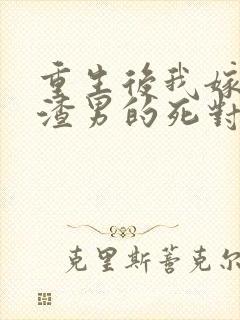 重生後我嫁
渣男的死對
克里斯蒈克尔